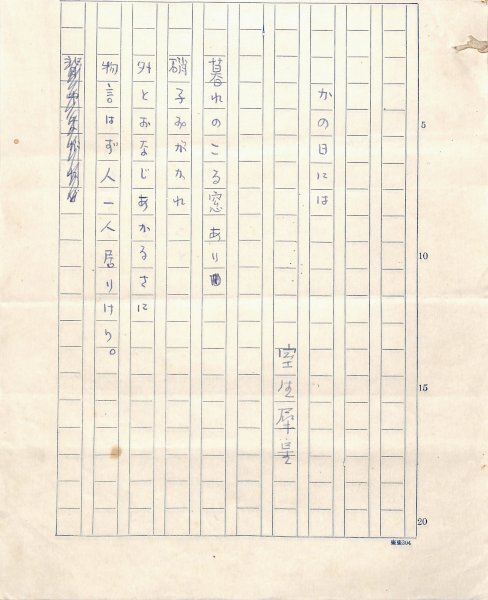 かの日には
室生犀星
暮れのこる窓あり
硝子みがかれ
外とおなじあかるさに
物言はず人一人居りけり。
5
10
15
20